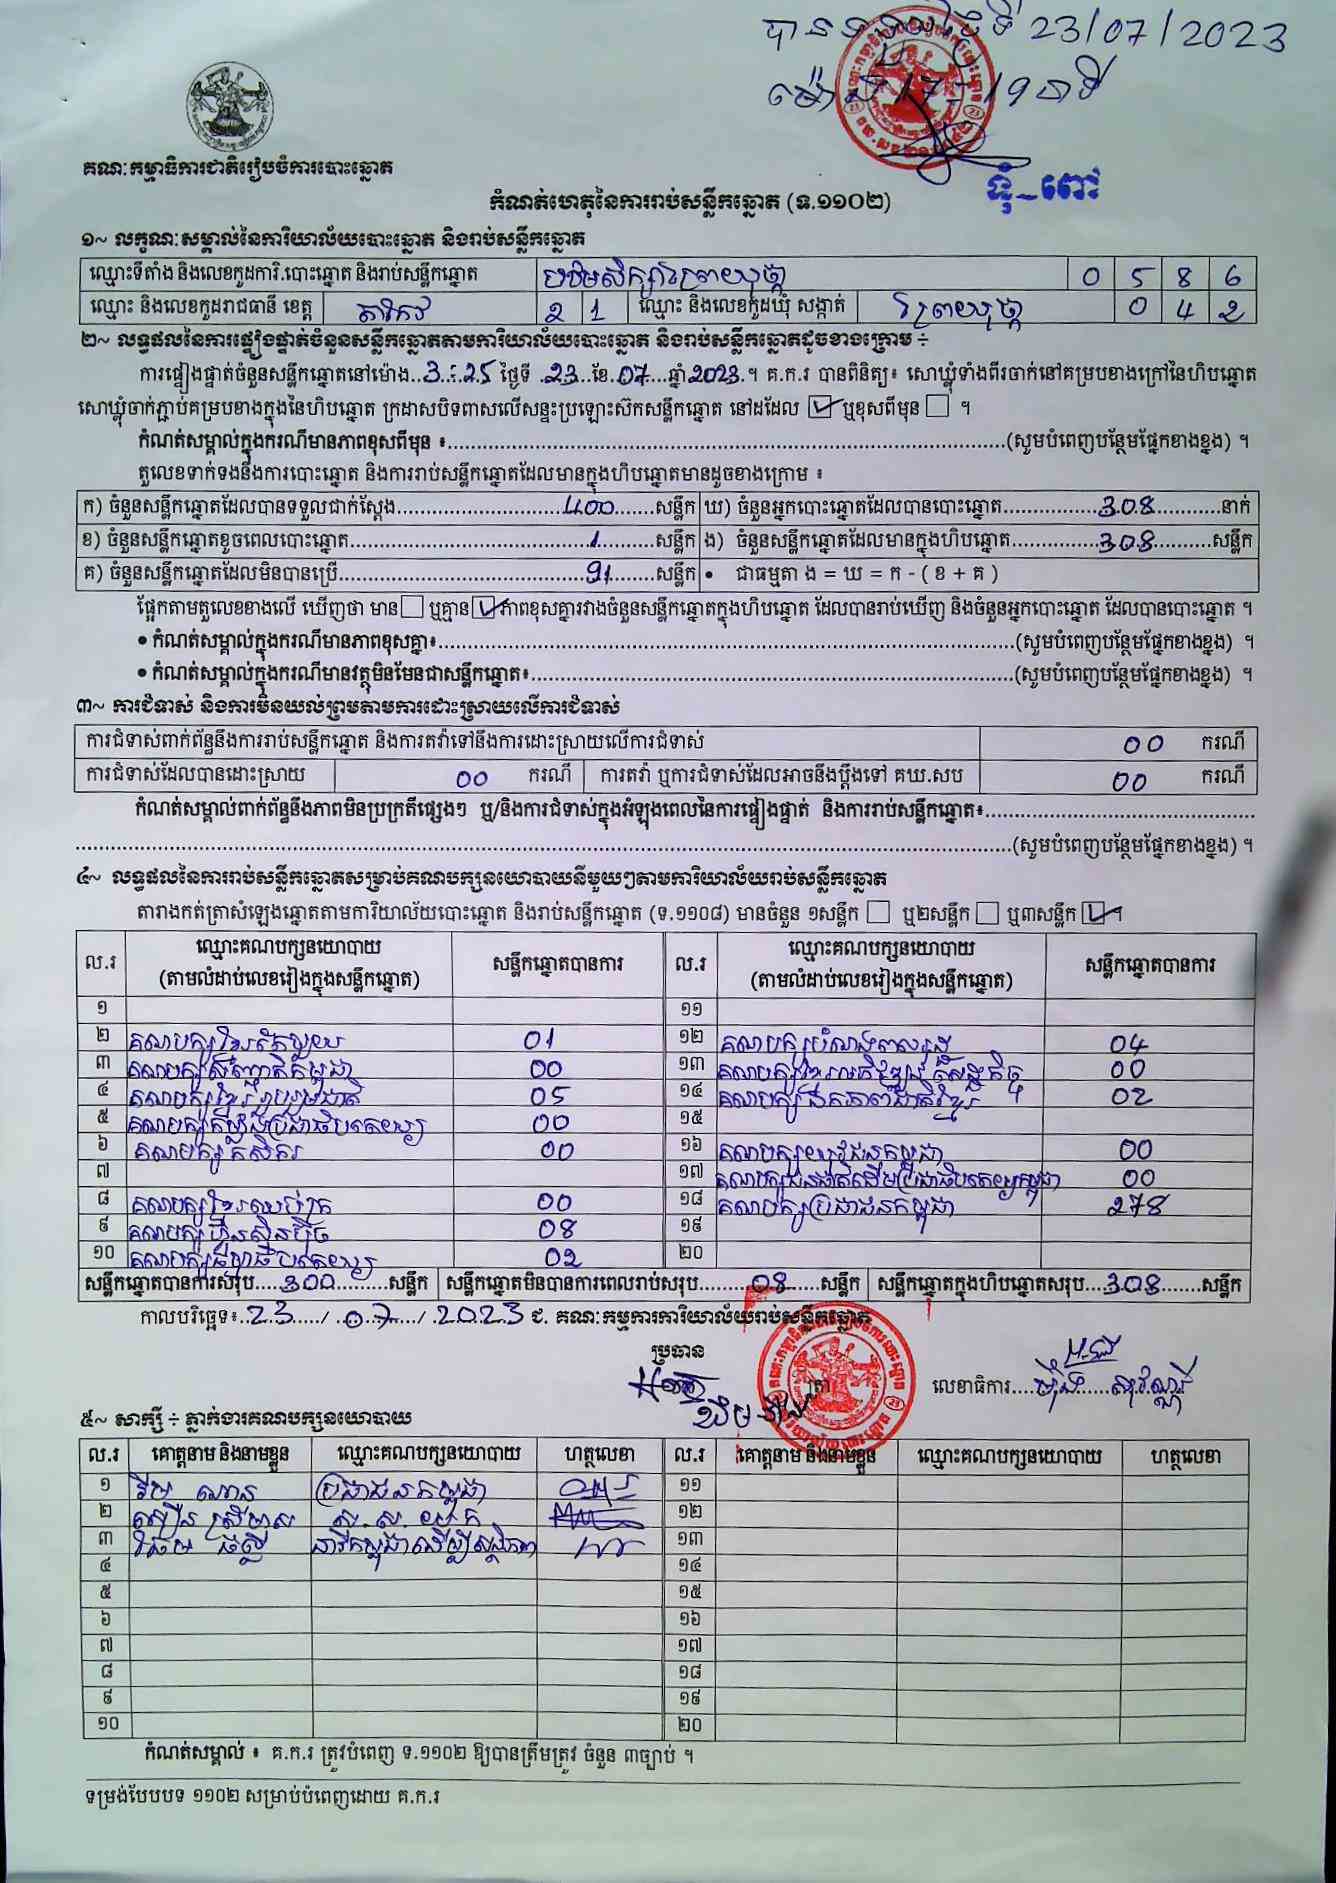 បានទទួលថ្ងៃទី 23/07/2023
ម៉ោង 17-19 នាទី
ទុំ-ពៅ
គណៈកម្មាធិការជាតិរៀបចំការបោះឆ្នោត
កំណត់ហេតុនៃការរាប់សន្លឹកឆ្នោត (ទ.១១០២)
១~ លក្ខណៈសម្គាល់នៃការិយាល័យបោះឆ្នោត និងរាប់សន្លឹកឆ្នោត
ឈ្មោះទីតាំង និងលេខកូដការិ.បោះឆ្នោត និងរាប់សន្លឹកឆ្នោត បឋមសិក្សាព្រៃយុថ្កា 0 5 8 6
ឈ្មោះ និងលេខកូដរាជធានី ខេត្ត តាកែវ 2 1 ឈ្មោះ និងលេខកូដឃុំ សង្កាត់ ព្រៃយុថ្កា 0 4 2
២~ លទ្ធផលនៃការផ្ទៀងផ្ទាត់ចំនួនសន្លឹកឆ្នោតតាមការិយាល័យបោះឆ្នោត និងរាប់សន្លឹកឆ្នោតដូចខាងក្រោម ÷
ការផ្ទៀងផ្ទាត់ចំនួនសន្លឹកឆ្នោតនៅម៉ោង 3:25 ថ្ងៃទី 23 ខែ 07 ឆ្នាំ 2023 ។ គ.ក.រ បានពិនិត្យ៖ សោឃ្លុំទាំងពីរចាក់នៅគម្របខាងក្រៅនៃហិបឆ្នោត
សោឃ្លុំចាក់ភ្ជាប់គម្របខាងក្នុងនៃហិបឆ្នោត ក្រដាសបិទពាសលើសន្ទះប្រឡោះស៊កសន្លឹកឆ្នោត នៅដដែល ☑ ឬខុសពីមុន ☐ ។
កំណត់សម្គាល់ក្នុងករណីមានភាពខុសពីមុន ៖ (សូមបំពេញបន្ថែមផ្នែកខាងខ្នង) ។
តួលេខទាក់ទងនឹងការបោះឆ្នោត និងការរាប់សន្លឹកឆ្នោតដែលមានក្នុងហិបឆ្នោតមានដូចខាងក្រោម ៖
ក) ចំនួនសន្លឹកឆ្នោតដែលបានទទួលជាក់ស្តែង 400 សន្លឹក ឃ) ចំនួនអ្នកបោះឆ្នោតដែលបានបោះឆ្នោត 308 នាក់
ខ) ចំនួនសន្លឹកឆ្នោតខូចពេលបោះឆ្នោត 1 សន្លឹក ង) ចំនួនសន្លឹកឆ្នោតដែលមានក្នុងហិបឆ្នោត 308 សន្លឹក
គ) ចំនួនសន្លឹកឆ្នោតដែលមិនបានប្រើ 91 សន្លឹក • ជាធម្មតា ង = ឃ = ក - ( ខ + គ )
ផ្អែកតាមតួលេខខាងលើ ឃើញថា មាន ☐ ឬគ្មាន ☑ ភាពខុសគ្នារវាងចំនួនសន្លឹកឆ្នោតក្នុងហិបឆ្នោត ដែលបានរាប់ឃើញ និងចំនួនអ្នកបោះឆ្នោត ដែលបានបោះឆ្នោត ។
• កំណត់សម្គាល់ក្នុងករណីមានភាពខុសគ្នា៖ (សូមបំពេញបន្ថែមផ្នែកខាងខ្នង) ។
• កំណត់សម្គាល់ក្នុងករណីមានវត្ថុមិនមែនជាសន្លឹកឆ្នោត៖ (សូមបំពេញបន្ថែមផ្នែកខាងខ្នង) ។
៣~ ការជំទាស់ និងការមិនយល់ព្រមតាមការដោះស្រាយលើការជំទាស់
ការជំទាស់ពាក់ព័ន្ធនឹងការរាប់សន្លឹកឆ្នោត និងការតវ៉ាទៅនឹងការដោះស្រាយលើការជំទាស់ 00 ករណី
ការជំទាស់ដែលបានដោះស្រាយ 00 ករណី ការតវ៉ា ឬការជំទាស់ដែលអាចនឹងប្តឹងទៅ គឃ.សប 00 ករណី
កំណត់សម្គាល់ពាក់ព័ន្ធនឹងភាពមិនប្រក្រតីផ្សេងៗ ឬ/និងការជំទាស់ក្នុងអំឡុងពេលនៃការផ្ទៀងផ្ទាត់ និងការរាប់សន្លឹកឆ្នោត៖
(សូមបំពេញបន្ថែមផ្នែកខាងខ្នង) ។
៤~ លទ្ធផលនៃការរាប់សន្លឹកឆ្នោតសម្រាប់គណបក្សនយោបាយនីមួយៗតាមការិយាល័យរាប់សន្លឹកឆ្នោត
តារាងកត់ត្រាសំឡេងឆ្នោតតាមការិយាល័យបោះឆ្នោត និងរាប់សន្លឹកឆ្នោត (ទ.១១០៨) មានចំនួន ១សន្លឹក ☐ ឬ២សន្លឹក ☐ ឬ៣សន្លឹក ☑ ។
ល.រ ឈ្មោះគណបក្សនយោបាយ សន្លឹកឆ្នោតបានការ ល.រ ឈ្មោះគណបក្សនយោបាយ សន្លឹកឆ្នោតបានការ
(តាមលំដាប់លេខរៀងក្នុងសន្លឹកឆ្នោត) (តាមលំដាប់លេខរៀងក្នុងសន្លឹកឆ្នោត)
១ ១១
២ គណបក្សខ្មែរតែមួយ 01 ១២ គណបក្សបំណងពលរដ្ឋ 04
៣ គណបក្សសញ្ជាតិកម្ពុជា 00 ១៣ គណបក្សខ្មែរអភិវឌ្ឍន៍សេដ្ឋកិច្ច 00
៤ គណបក្សខ្មែររួបរួមជាតិ 05 ១៤ គណបក្សឯកភាពជាតិខ្មែរ 02
៥ គណបក្សកម្លាំងប្រជាធិបតេយ្យ 00 ១៥
៦ គណបក្សកសិករ 00 ១៦ គណបក្សយុវជនកម្ពុជា 00
៧ ១៧ គណបក្សជនជាតិដើមប្រជាធិបតេយ្យកម្ពុជា 00
៨ គណបក្សខ្មែរឈប់ក្រ 00 ១៨ គណបក្សប្រជាជនកម្ពុជា 278
៩ គណបក្សហ្វ៊ុនស៊ិនប៉ិច 08 ១៩
១០ គណបក្សធម្មាធិបតេយ្យ 02 ២០
សន្លឹកឆ្នោតបានការសរុប 300 សន្លឹក សន្លឹកឆ្នោតមិនបានការពេលរាប់សរុប 08 សន្លឹក សន្លឹកឆ្នោតក្នុងហិបឆ្នោតសរុប 308 សន្លឹក
កាលបរិច្ឆេទ៖ 23 / 07 / 2023 ជ. គណៈកម្មការការិយាល័យរាប់សន្លឹកឆ្នោត
ប្រធាន
ត្រា លេខាធិការ
៥~ សាក្សី ÷ ភ្នាក់ងារគណបក្សនយោបាយ
ល.រ គោត្តនាម និងនាមខ្លួន ឈ្មោះគណបក្សនយោបាយ ហត្ថលេខា ល.រ គោត្តនាម និងនាមខ្លួន ឈ្មោះគណបក្សនយោបាយ ហត្ថលេខា
១ ប្រជាជនកម្ពុជា ១១
២ ស.ស.យ.ក ១២
៣ នារីកម្ពុជាដើម្បីសន្តិភាព ១៣
៤ ១៤
៥ ១៥
៦ ១៦
៧ ១៧
៨ ១៨
៩ ១៩
១០ ២០
កំណត់សម្គាល់ ៖ គ.ក.រ ត្រូវបំពេញ ទ.១១០២ ឱ្យបានត្រឹមត្រូវ ចំនួន ៣ច្បាប់ ។
ទម្រង់បែបបទ ១១០២ សម្រាប់បំពេញដោយ គ.ក.រ